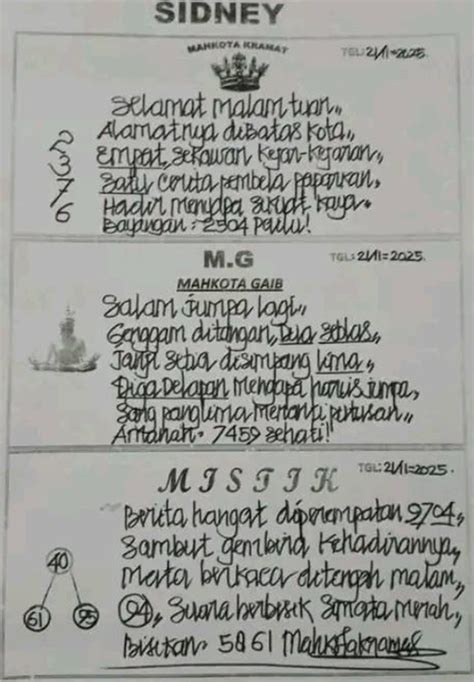 SIDNEY
MAHKOTA KRAMAT
TGL: 21/11=2025.
Selamat malam tuan,,
Alamatnya dibatas kota,,
Empat, sekawan kejar-kejaran,,
Satu cerita pembela paparkan,
Hadir menyapa kaya.
Bayangan: 2304 Palu!
2
3
7/6
M.G
TGL: 21/11=2025.
MAHKOTA GAIB
Salam jumpa lagi,,
Genggam ditangan, Dua Sebelas,,
Janji setia disimpang lima,,
Tiga Delapan mengapa harus jumpa,
Sang panglima menanti putusan,,
Amanah: 7459 sehati!
MISTIK
TGL: 21/11=2025.
Berita hangat diperempatan 9704,,
Sambut gembira kehadirannya,,
Mata berkaca ditengah malam,,
94, Suara berbisik Simata merah,,
Bisikan: 5861 Mahkotakramat
40
61
95